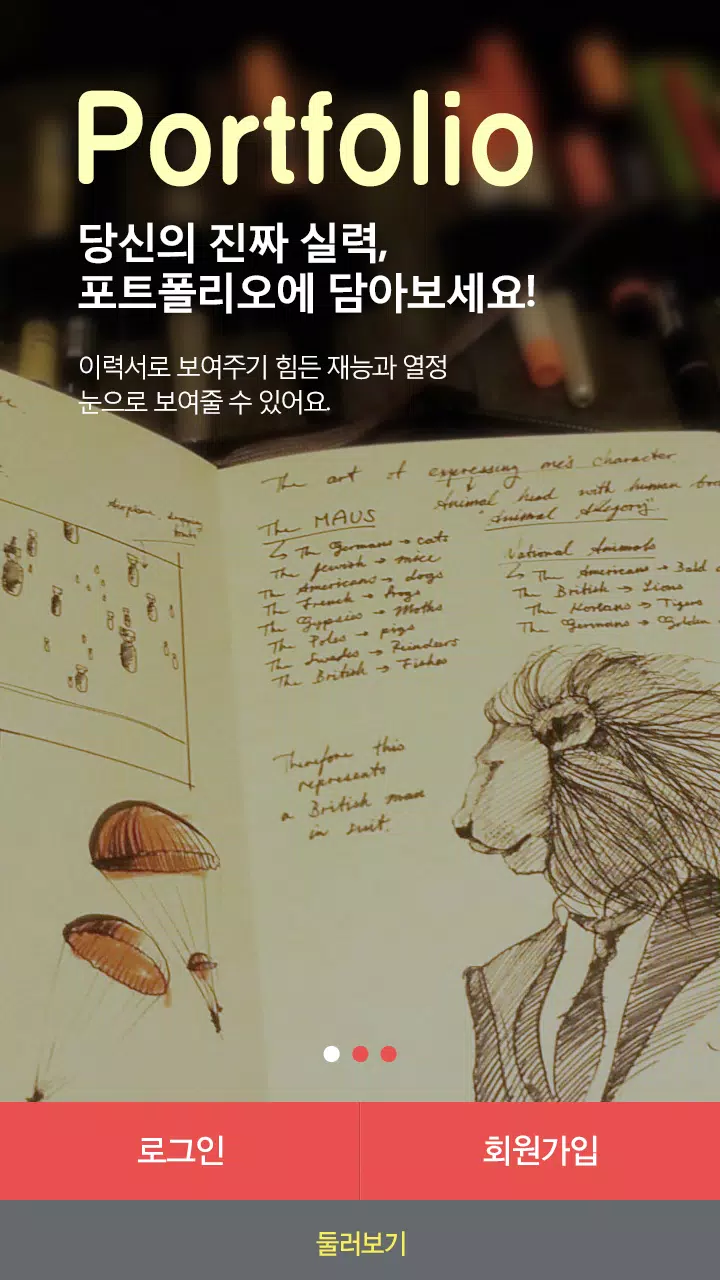 Portfolio
당신의 진짜 실력,
포트폴리오에 담아보세요!
이력서로 보여주기 힘든 재능과 열정
눈으로 보여줄 수 있어요.
The art of expressing one's character.
Animal head with human
"Animal Allegory"
The MAUS
↳ The Germans → cats
The Jewish → mice
The Americans → dogs
The French → frogs
The Gypsies → Moths
The Poles → pigs
The Swedes → Reindeers
The British → Fishes
National Animals
↳ The Americans → Bald
The British → Lions
The Koreans → Tigers
The Germans → Golden
Therefore this
represents
a British man
in suit.
로그인
회원가입
둘러보기